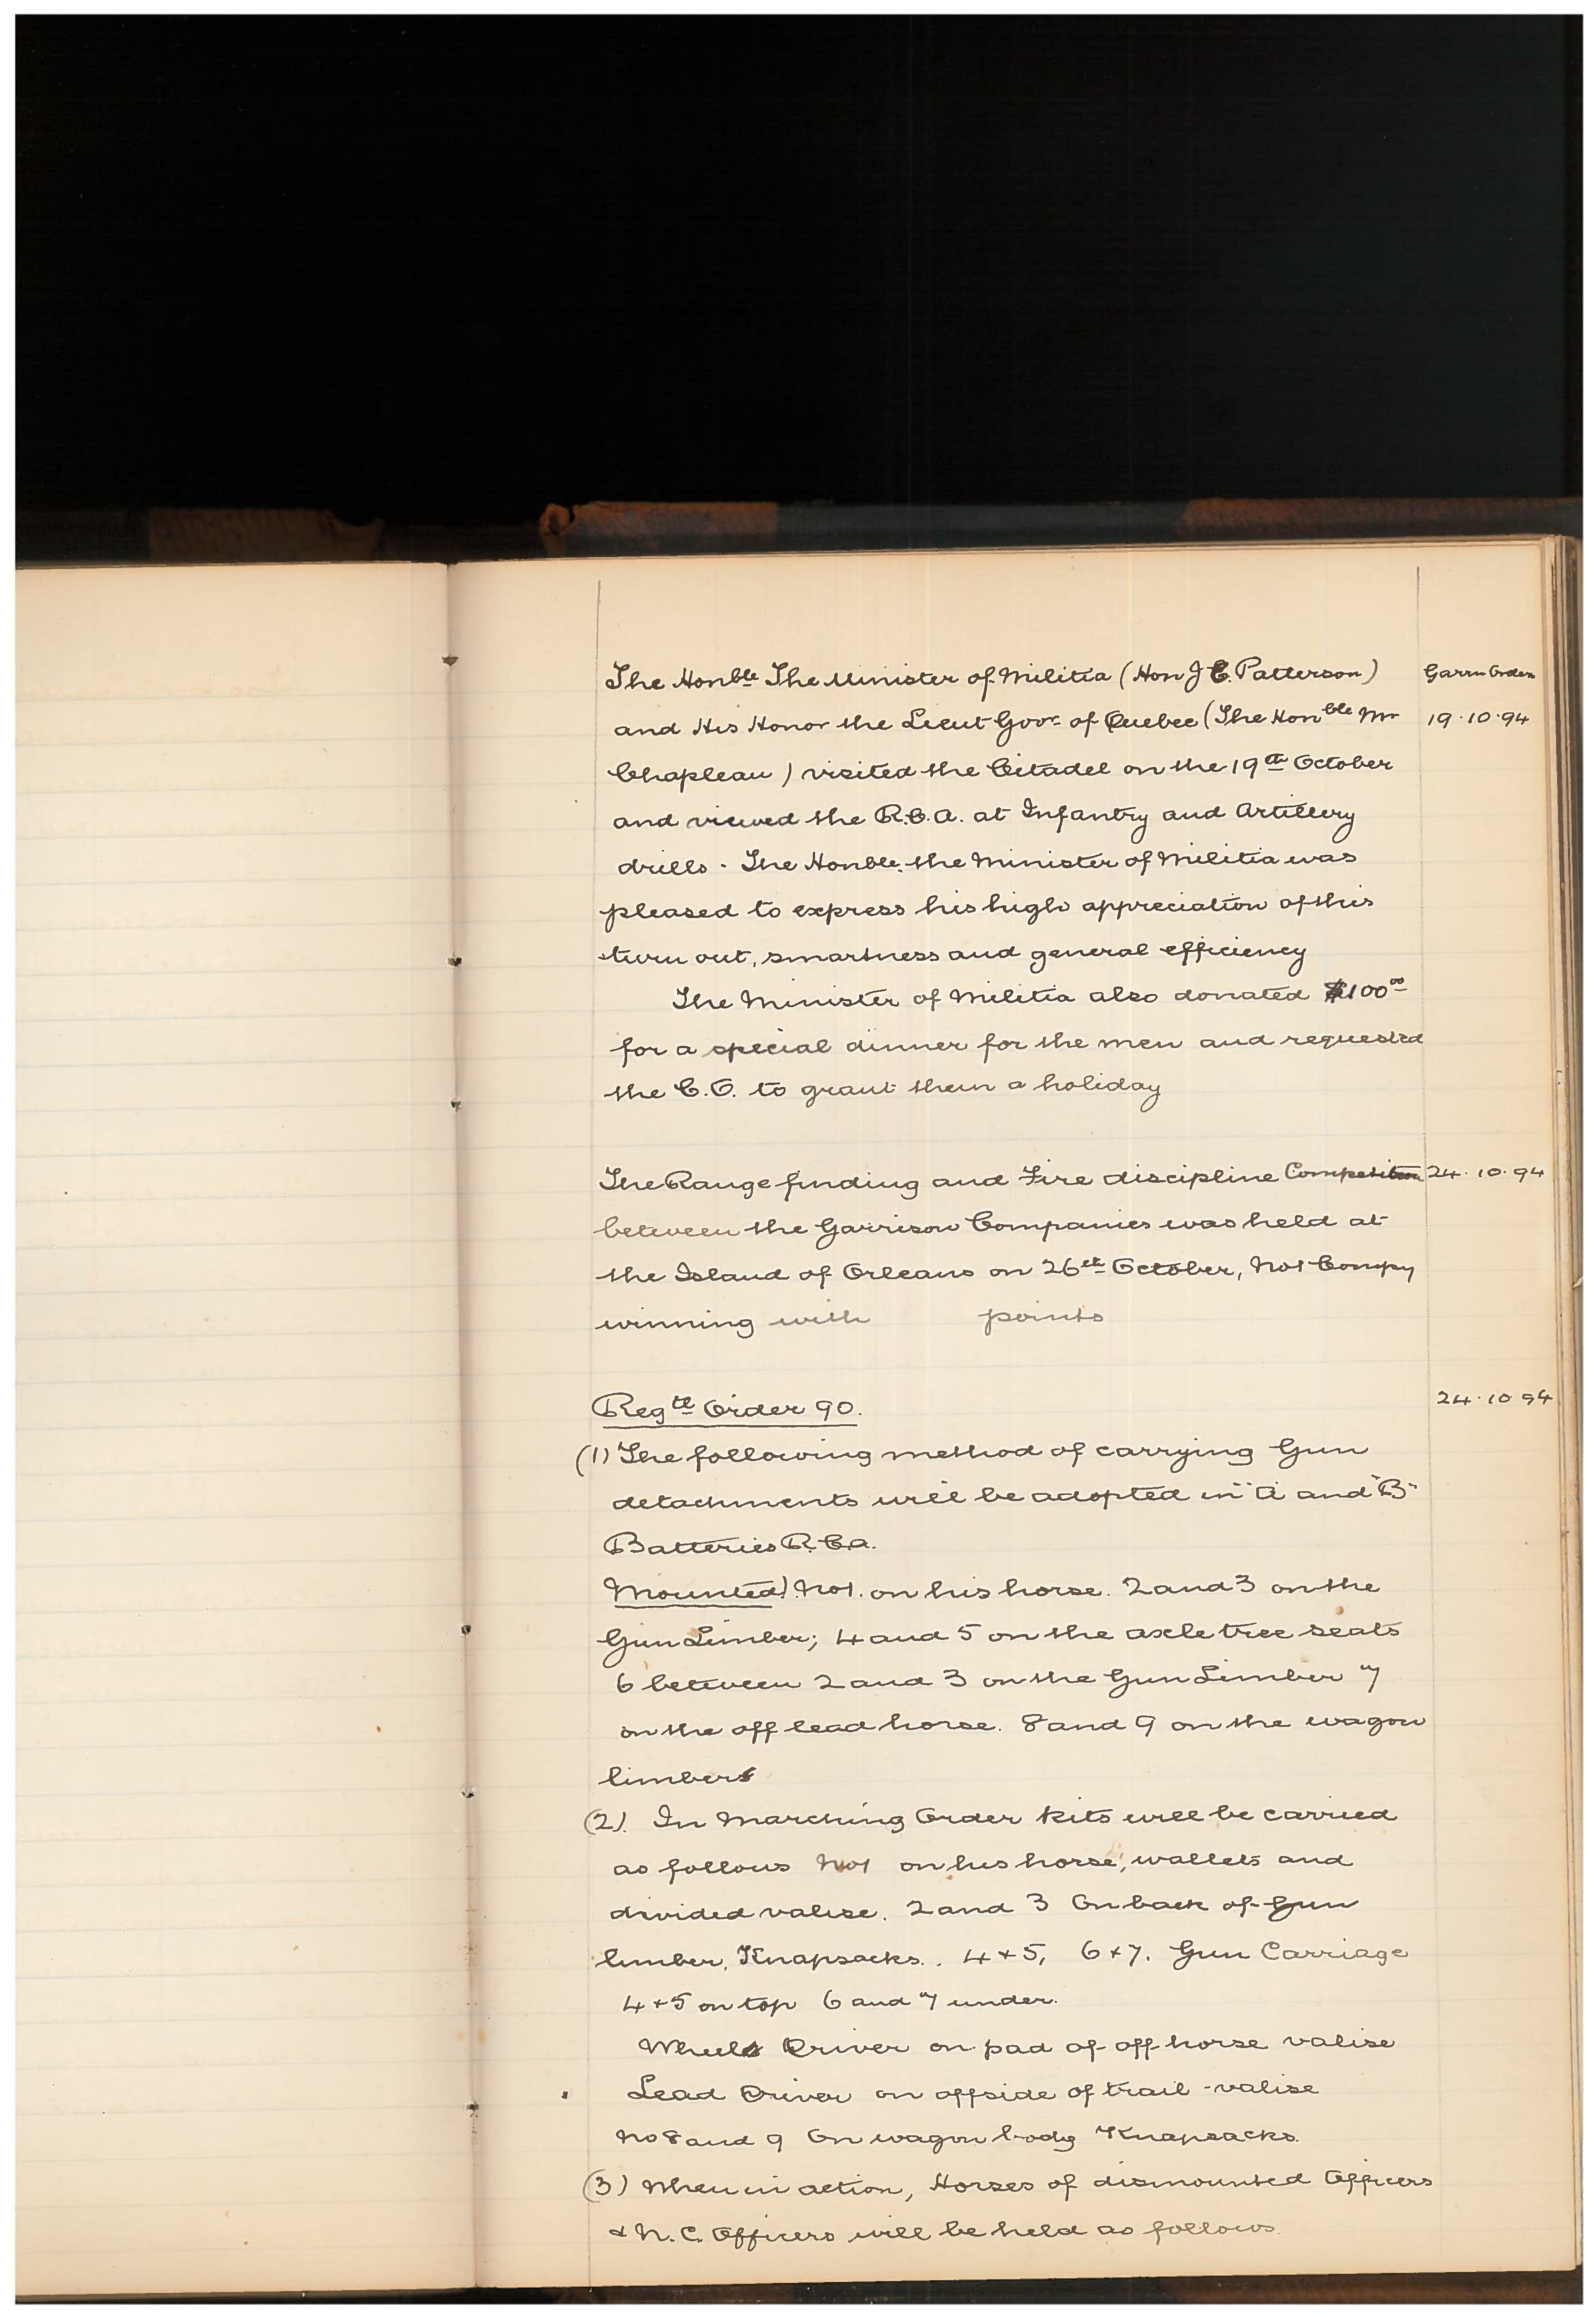 The Honble The Minister of Militia (Hon J C. Patterson) Garrn Orders
and His Honor the Lieut Govr of Quebec (The Honble Mr 19.10.94
Chapleau) visited the Citadel on the 19th October
and viewed the R.C.A. at Infantry and Artillery
drills. The Honble. the Minister of Militia was
pleased to express his high appreciation of this
turn out, smartness and general efficiency
The Minister of Militia also donated $100.00
for a special dinner for the men and requested
the C.O. to grant them a holiday
The Range finding and Fire discipline Competition 24.10.94
between the Garrison Companies was held at
the Island of Orleans on 26th October, No 1 Compy
winning with points
Regtl Order 90. 24.10 94
(1) The following method of carrying Gun
detachments will be adopted in "A" and "B"
Batteries R.C.A.
Mounted). No 1. on his horse. 2 and 3 on the
Gun Limber; 4 and 5 on the axle tree seats
6 between 2 and 3 on the Gun Limber 7
on the off lead horse. 8 and 9 on the wagon
limber
(2). In Marching Order kits will be carried
as follows No 1 on his horse, wallets and
divided valise. 2 and 3 On back of Gun
limber, Knapsacks. 4 + 5, 6 + 7. Gun Carriage
4 + 5 on top 6 and 7 under.
Wheel Driver on pad of off horse valise
Lead Driver on offside of trail - valise
No 8 and 9 On wagon body Knapsacks.
(3) When in action, Horses of dismounted Officers
& N.C. Officers will be held as follows